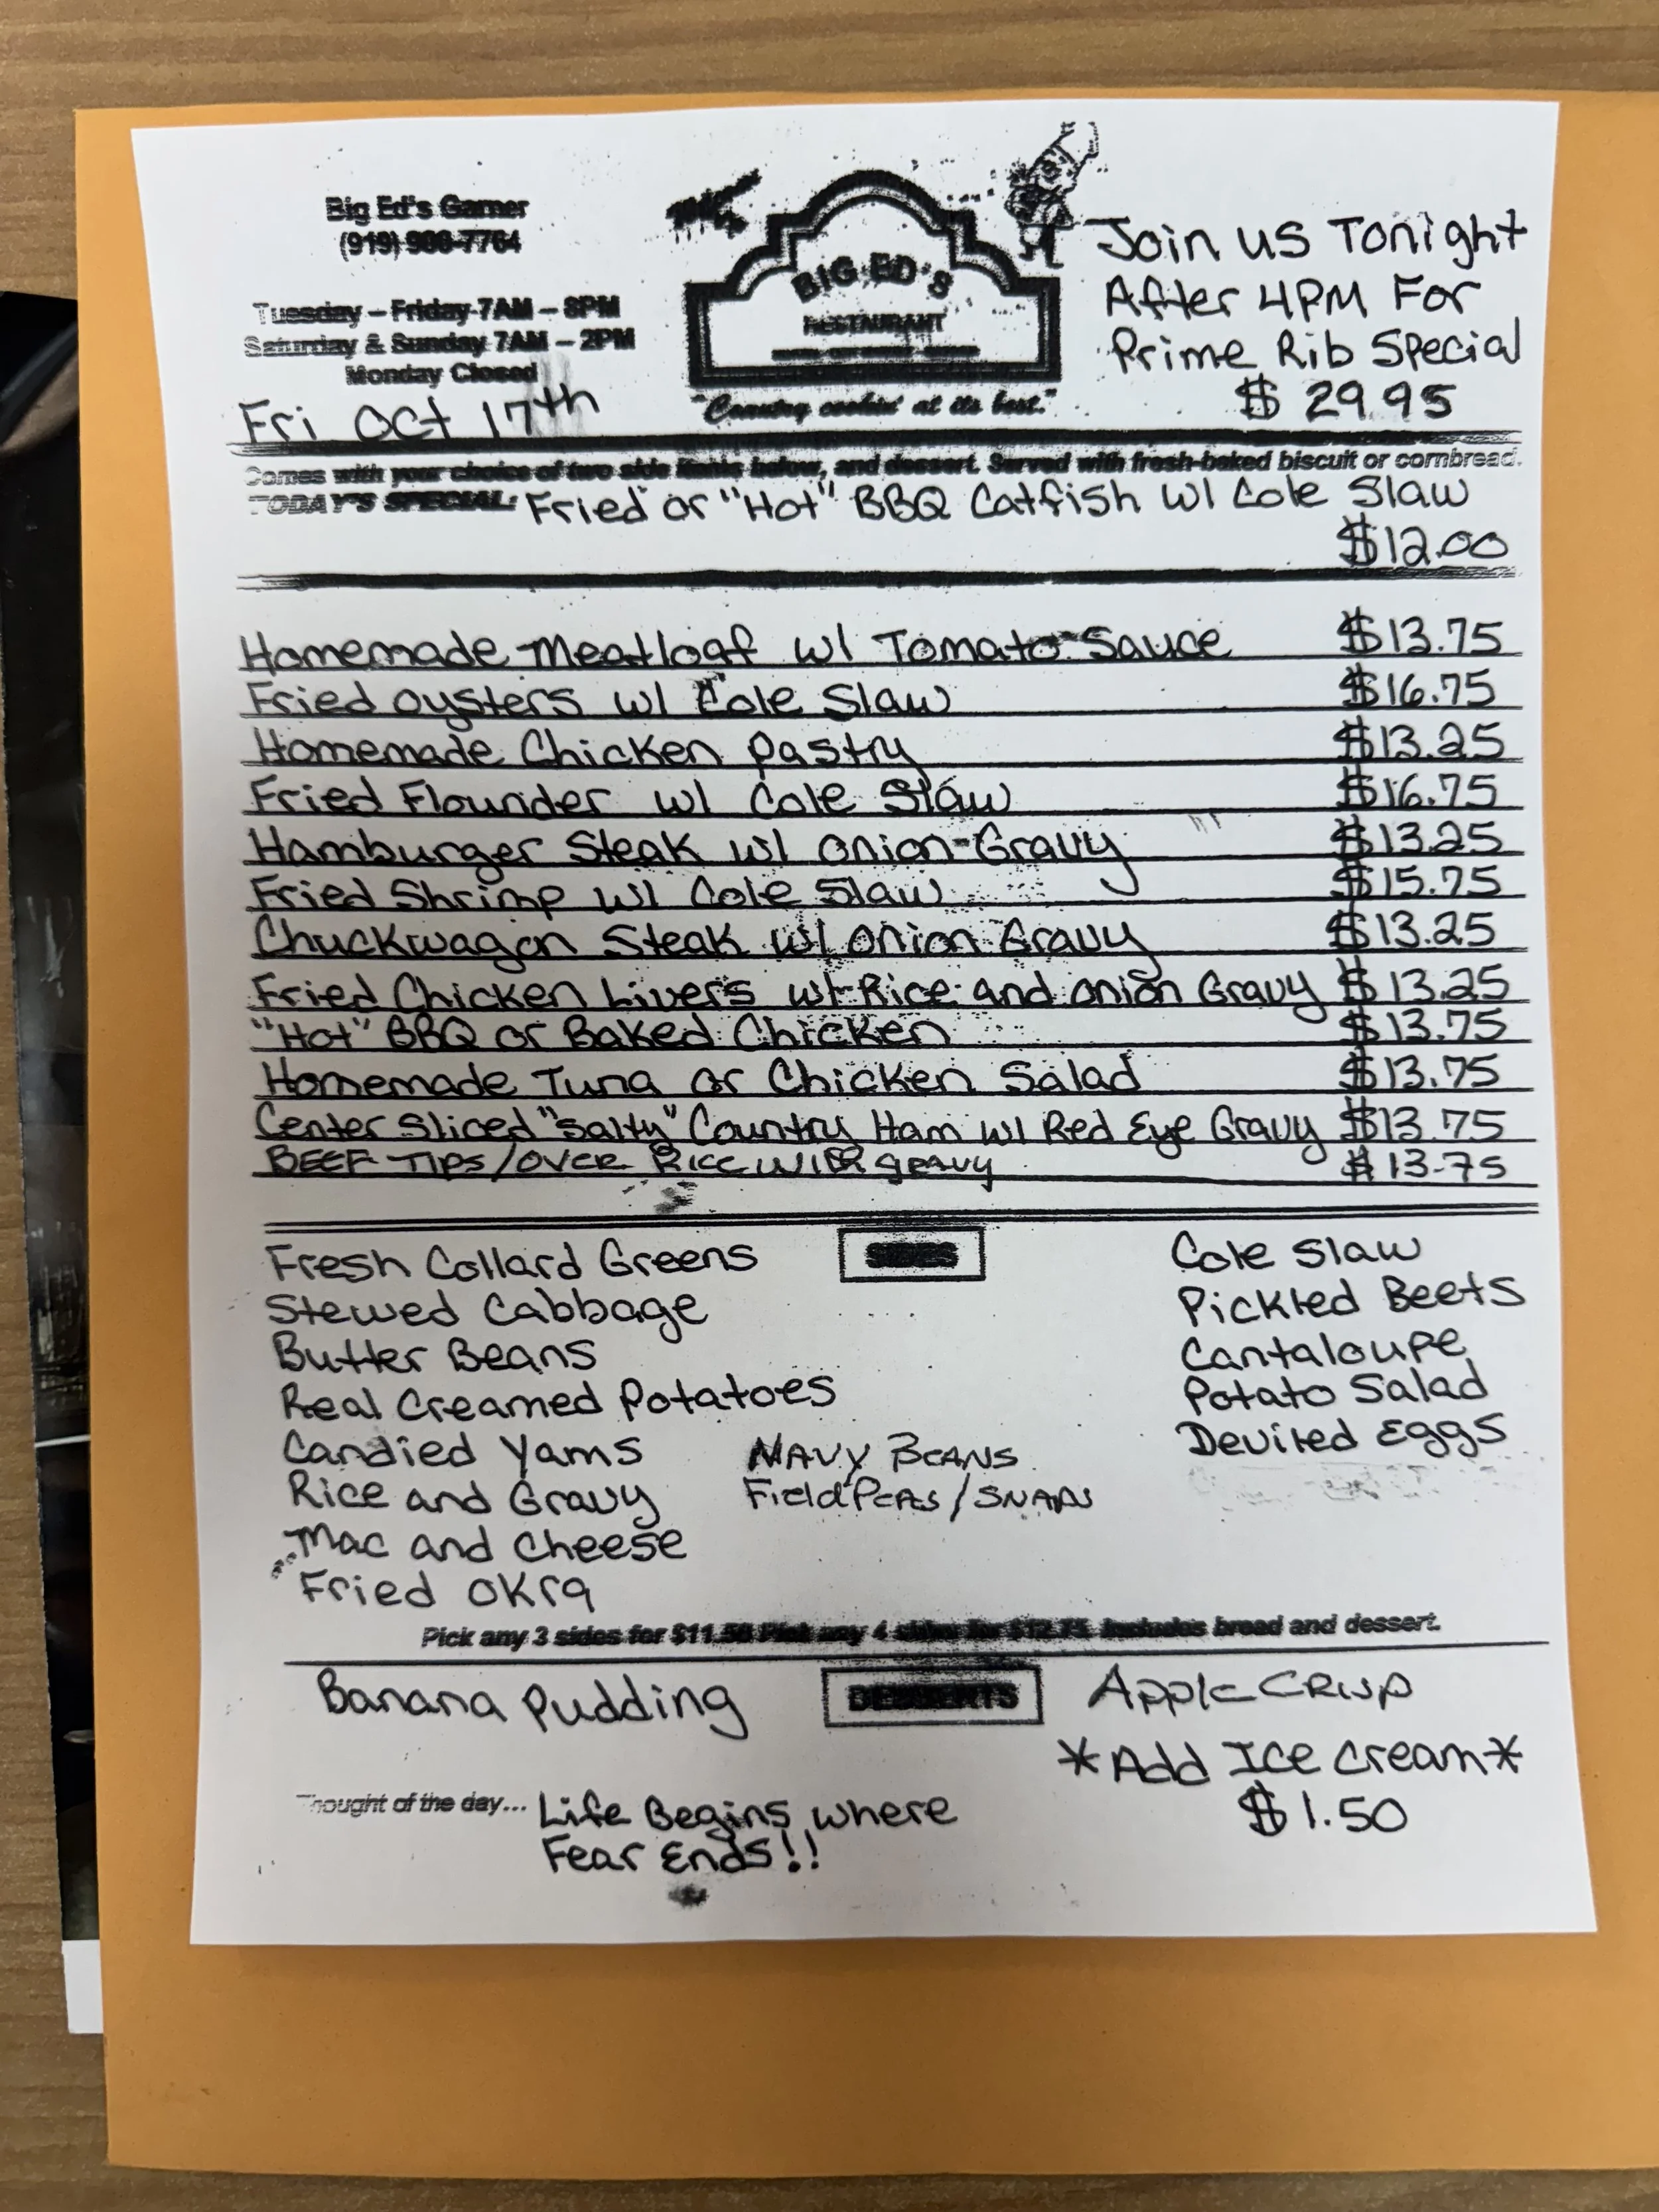 Big Ed's Garner
(919) 900-7764
Tuesday – Friday 7AM – 8PM
Saturday & Sunday 7AM – 2PM
Monday Closed
Fri Oct 17th
BIG ED'S
RESTAURANT
"Country cookin' at its best."
Join us Tonight
After 4PM For
Prime Rib Special
$ 29.95
Comes with your choice of two side items below, and dessert. Served with fresh-baked biscuit or cornbread.
TODAY'S SPECIAL: Fried or "Hot" BBQ Catfish w/ Cole Slaw
$12.00
Homemade Meatloaf w/ Tomato Sauce $13.75
Fried Oysters w/ Cole Slaw $16.75
Homemade Chicken Pastry $13.25
Fried Flounder w/ Cole Slaw $16.75
Hamburger Steak w/ Onion Gravy $13.25
Fried Shrimp w/ Cole Slaw $15.75
Chuckwagon Steak w/ Onion Gravy $13.25
Fried Chicken Livers w/ Rice and Onion Gravy $13.25
"Hot" BBQ or Baked Chicken $13.75
Homemade Tuna or Chicken Salad $13.75
Center Sliced "Salty" Country Ham w/ Red Eye Gravy $13.75
BEEF TIPS/OVER RICE WITH gravy $13.75
SIDES
Fresh Collard Greens
Stewed Cabbage
Butter Beans
Real Creamed Potatoes
Candied Yams
Rice and Gravy
Mac and Cheese
Fried Okra
NAVY BEANS
Field PEAS/SNAPS
Cole Slaw
Pickled Beets
Cantaloupe
Potato Salad
Deviled Eggs
Pick any 3 sides for $11.50 Pick any 4 sides for $12.75. Includes bread and dessert.
DESSERTS
Banana Pudding
Apple CRISP
*Add Ice Cream*
$1.50
Thought of the day... Life Begins where
Fear Ends!!